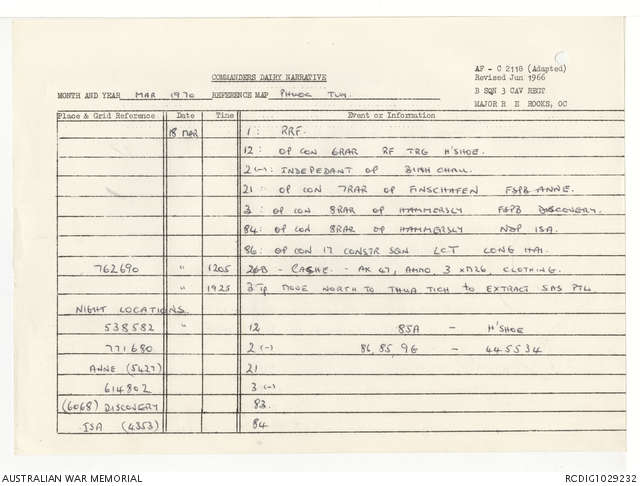 AF - C 2118 (Adapted)
Revised Jun 1966
COMMANDERS DAIRY NARRATIVE
MONTH AND YEAR MAR 1970 REFERENCE MAP PHUOC TUY.
B SQN 3 CAV REGT
MAJOR R E ROOKS, OC
Place & Grid Reference Date Time Event or Information
18 MAR 1: RRF.
12: OP CON 6RAR RF TRG H'SHOE.
2(-): INDEPEDANT OP BINH CHAU.
21: OP CON 7RAR OP FINSCHAFEN FSPB ANNE.
3: OP CON 8RAR OP HAMMERSLY FSPB DISCOVERY.
84: OP CON 8RAR OP HAMMERSLY NDP ISA.
86: OP CON 17 CONSTR SQN LCT LONG HAI.
762690 " 1205 26B - CACHE. - AK 47, AMMO, 3 XM26, CLOTHING.
" 1925 3 Tp MOVE NORTH TO THUA TICH TO EXTRACT SAS PTL
NIGHT LOCATIONS.
538582 " 12 85A - H'SHOE
771680 2 (-) 86, 85, 9E - 445534
ANNE (5427) 21
614802 3 (-)
(6068) DISCOVERY 83.
ISA (4353) 84
AUSTRALIAN WAR MEMORIAL RCDIG1029232